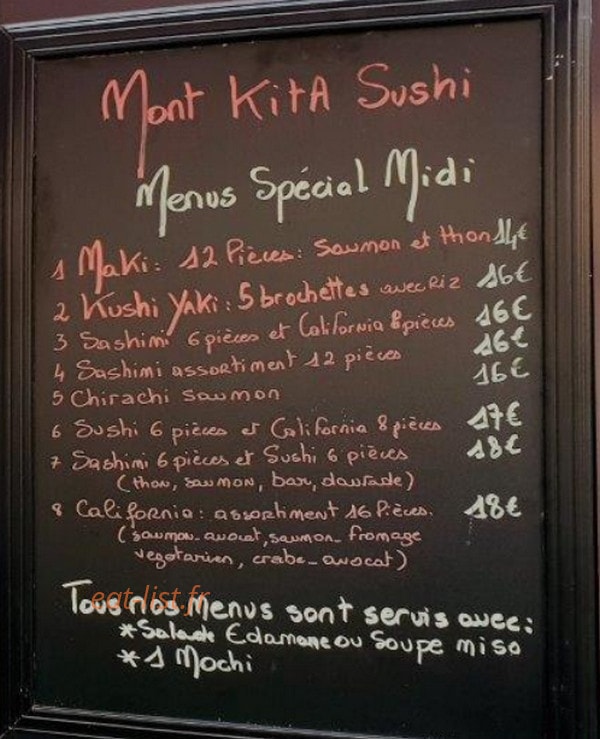 Mont KitA Sushi
Menus Spécial Midi
1 Maki: 12 Pièces: Saumon et thon 14€
2 Kushi Yaki: 5 brochettes avec Riz 16€
3 Sashimi 6 pièces et California 8 pièces 16€
4 Sashimi assortiment 12 pièces 16€
5 Chirachi saumon 16€
6 Sushi 6 pièces et California 8 pièces 17€
7 Sashimi 6 pièces et Sushi 6 pièces 18€
(thon, saumon, bar, daurade)
8 California: assortiment 16 Pièces. 18€
(saumon-avocat, saumon-fromage
vegetarien, crabe-avocat)
Tous nos Menus sont servis avec:
eat-list.fr
*Salade Edamame ou Soupe miso
*1 Mochi